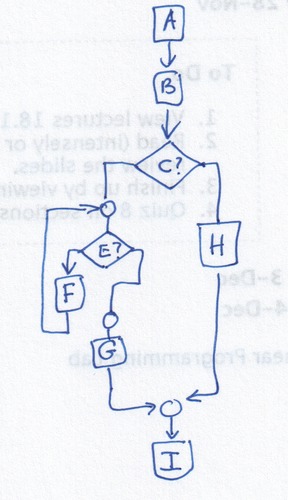 28-Nov
A
To Do
B
1. View lectures 18.1
2. Read (intensely or
C?
the slides.
3. Finish up by viewing
4. Quiz 8 sections
H
E?
3-Dec
F
4-Dec
G
Programming Lab
I